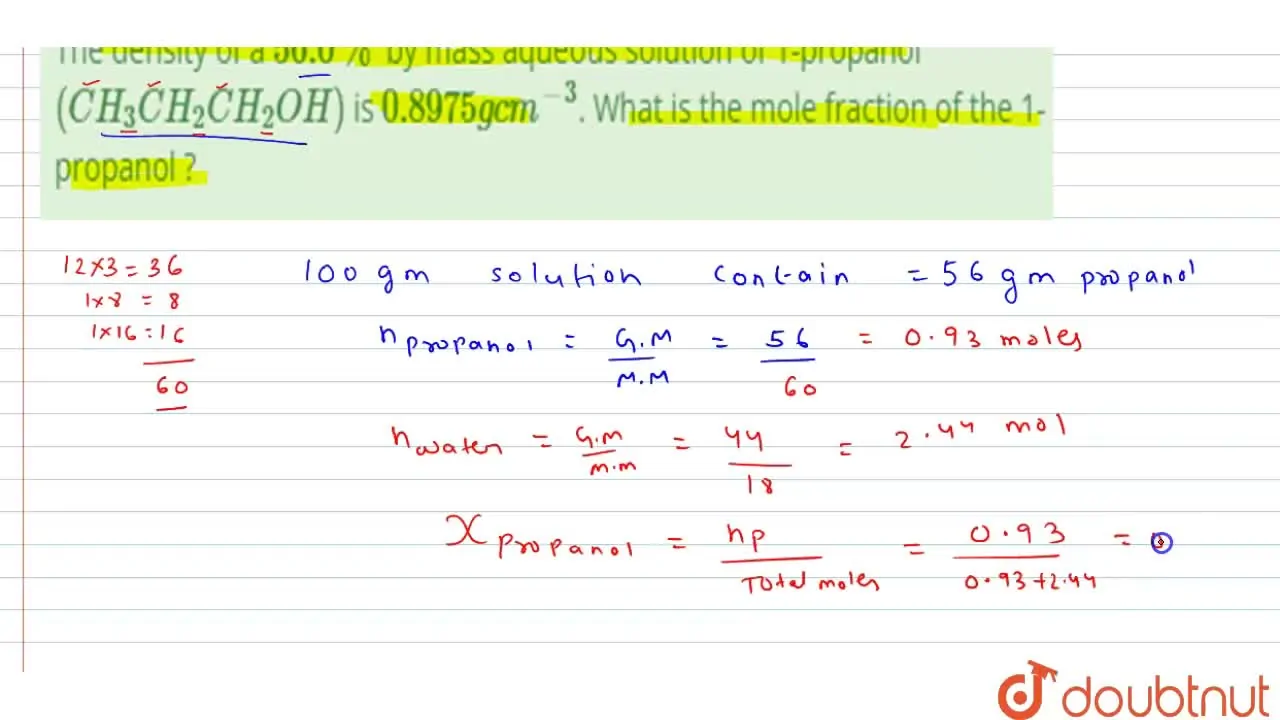 The density of a 56.0 % by mass aqueous solution of 1-propanol
(CH₃CH₂CH₂OH) is 0.8975gcm⁻³. What is the mole fraction of the 1-
propanol ?
12×3=36
1×8 = 8
1×16=16
60
100 gm solution contain = 56 gm propanol
n propanol = G.M / M.M = 56 / 60 = 0.93 moles
n water = G.M / M.M = 44 / 18 = 2.44 mol
X propanol = np / Total moles = 0.93 / 0.93+2.44 =
doubtnut